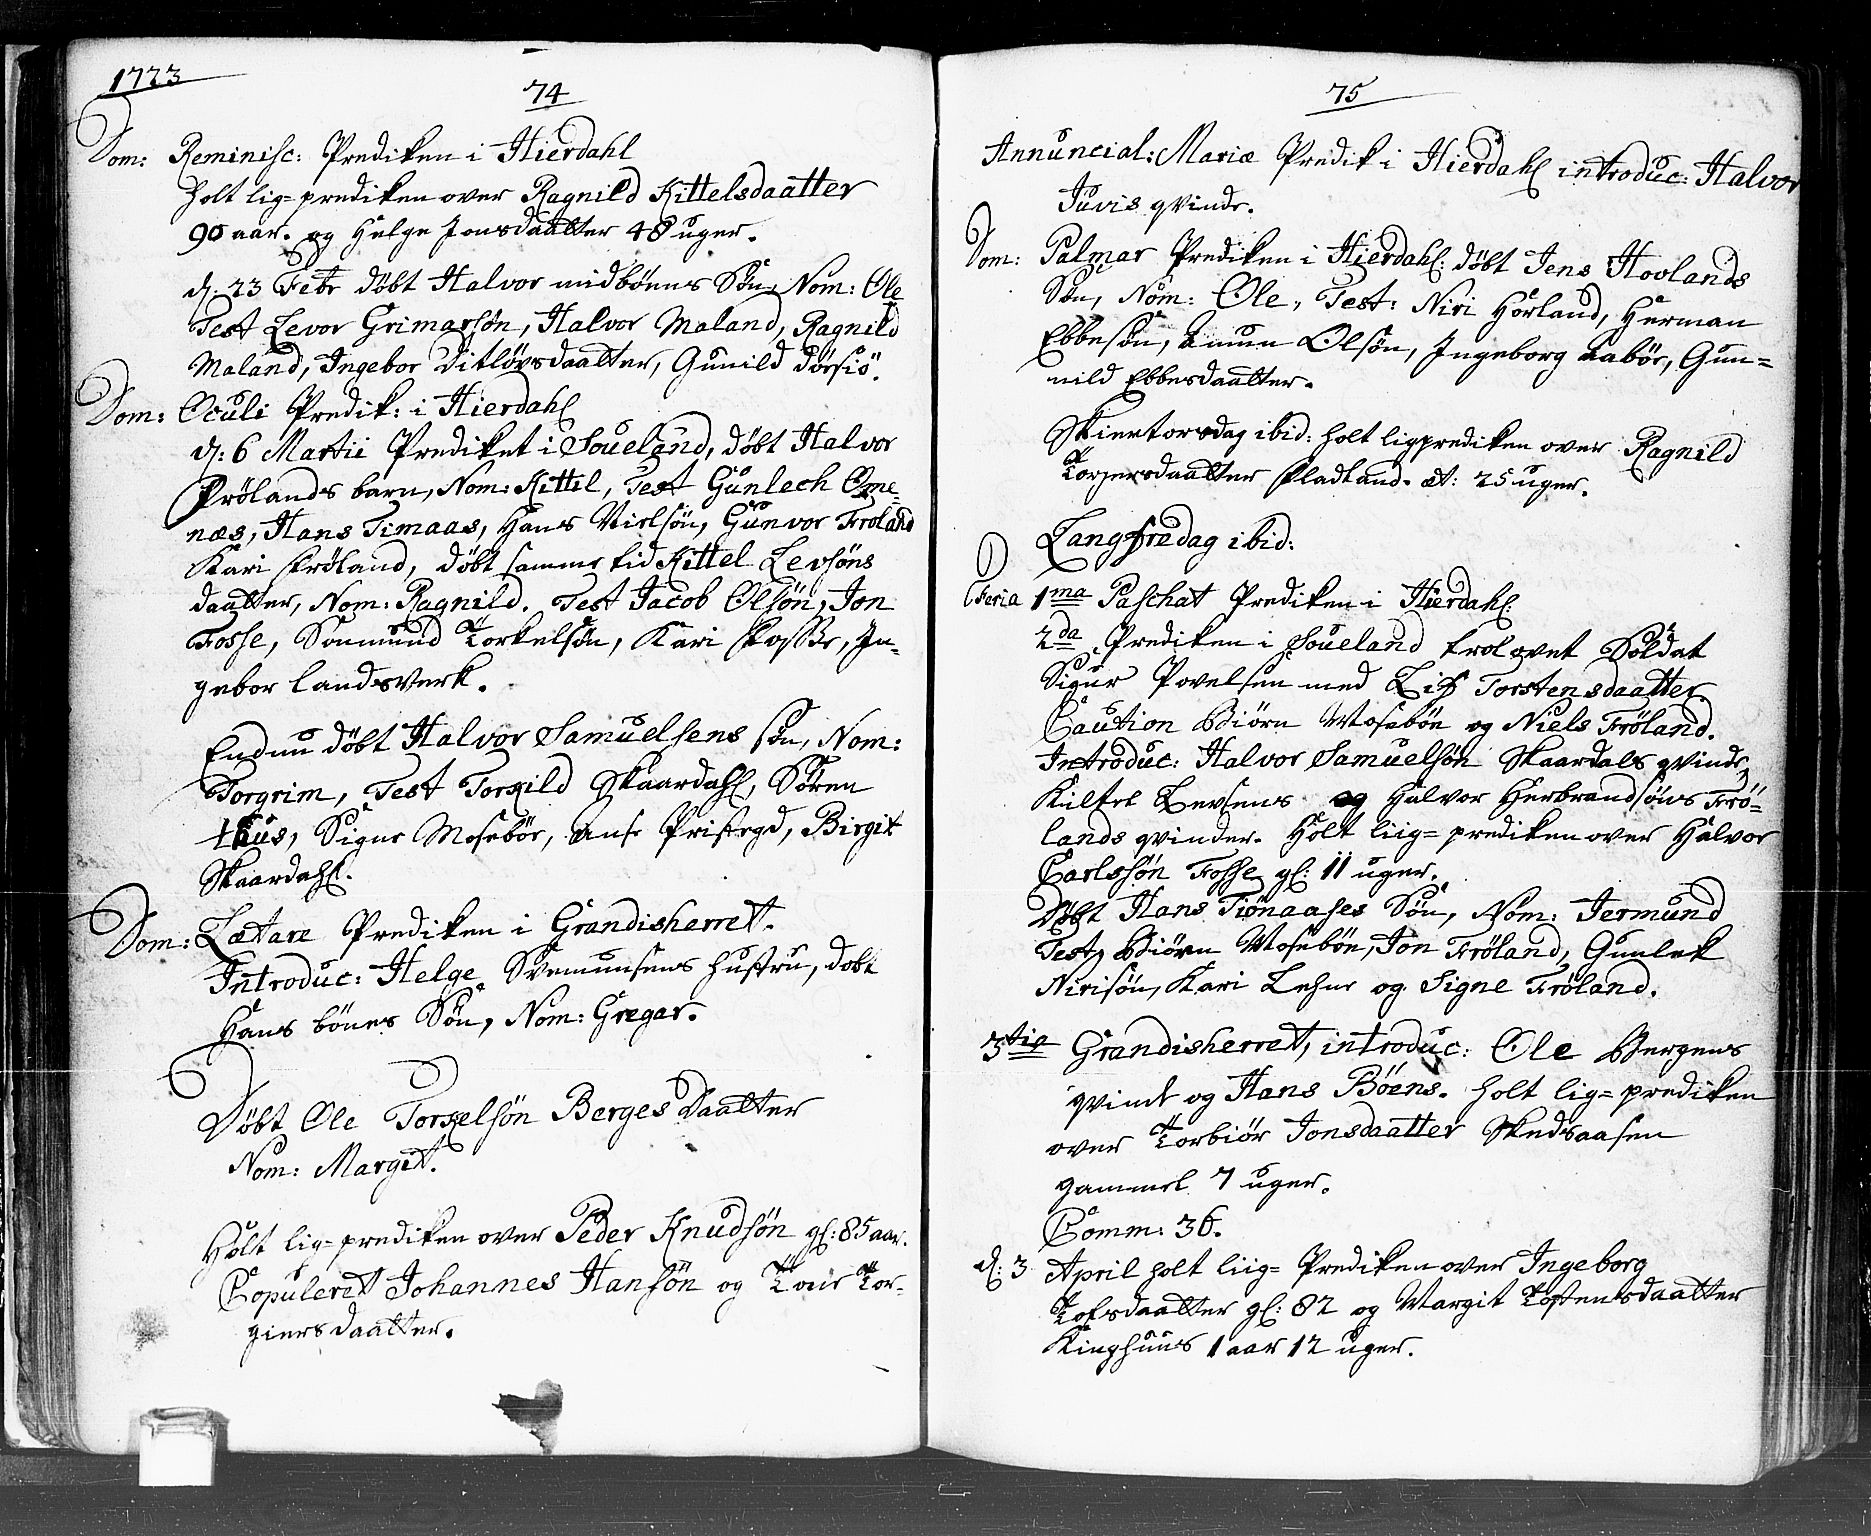 1723
74
Dom: Reminisc: Prediken i Hierdahl
holt lig=prediken over Ragnild Kittelsdaatter
90 aar. og Helge Jonsdaatter 48 uger.
d. 23 Febr døbt Halvor midbøens Søn, Nom: Ole
Test Levor Grimarsøn, Halvor Maland, Ragnild
Maland, Ingebor Ditløvsdaatter, Gunild Dørsiø.
Dom: Oculi Predik: i Hierdahl
d: 6 Martii Prediket i Soueland, døbt Halvor
Frølands barn, Nom: Kittil, Test Gunlech Ome-
næs, Hans Timaas, Hans Nielsøn, Gunvor Frøland
Kari Frøland, døbt samme tid Kittel Levsøns
daatter, Nom: Ragnild. Test Jacob Olsøn, Jon
Fosse, Sonmund Torkelsøn, Kari Fosse, In-
gebor Landsverk.
Endnu døbt Halvor Samuelsens søn, Nom:
Torgrim, Test Torkild Skaardahl, Søren
Huus, Signe Mosebør, Birgit
Skaardahl.
Dom: Lætare Prediken i Grandisherret.
Introduc: Helge Svemunsens hustru, døbt
Hans bønes Søn, Nom: Gregar.
Døbt Ole Torkelsøn Berges Daatter
Nom: Margit.
Holt lig=prediken over Peder Knudsøn gl: 85 aar.
Copuleret Johannes Hansøn og Tone Tor-
giersdaatter.
75
Annuncial: Mariæ Predik i Hierdahl introduc: Halvor
Juvis qvinde.
Dom: Palmar Prediken i Hierdahl: døbt Jens Hovlands
Søn, Nom: Ole, Test: Niri Hørland, Herman
Ebbesøn, Amun Olsøn, Ingeborg Labør, Gun=
nild Ebbesdaatter.
Skiertorsdag ibid: holt ligprediken over Ragnild
Torgersdaatter Fladland. æt: 25 uger.
Langfredag ibid:
Feria 1ma Paschat Prediken i Hierdahl:
2da Prediken i Soueland trolovet Soldat
Sigur Povelsen med Liv Torstensdaatter
Caution Biørn Mosebøn og Niels Frøland.
Introduc: Halvor Samuelsøn Skaardals qvinde,
Kittel Levsens og Halvor Herbrandsøns Frø-
lands qvinder. Holt liig=prediken over Halvor
Carlssøn Fosse gl: 11 uger.
Døbt Hans Tiønaases Søn, Nom: Jermund
Test, Biørn Mosebøn, Jon Frøland, Gunlek
Nirisøn, Kari Lehne og Signe Frøland.
3tia Grandisherret, introduc: Ole Bergens
qvinde og Hans Bøens. holt lig=prediken
over Torbiør Jonsdaatter Skedsaasen
gammel 7 uger.
Comm: 36.
d: 3 April holt liig=Prediken over Ingeborg
Tofsdaatter gl: 82 og Margit Tostensdaatter
Kinghuus 1 aar 12 uger.